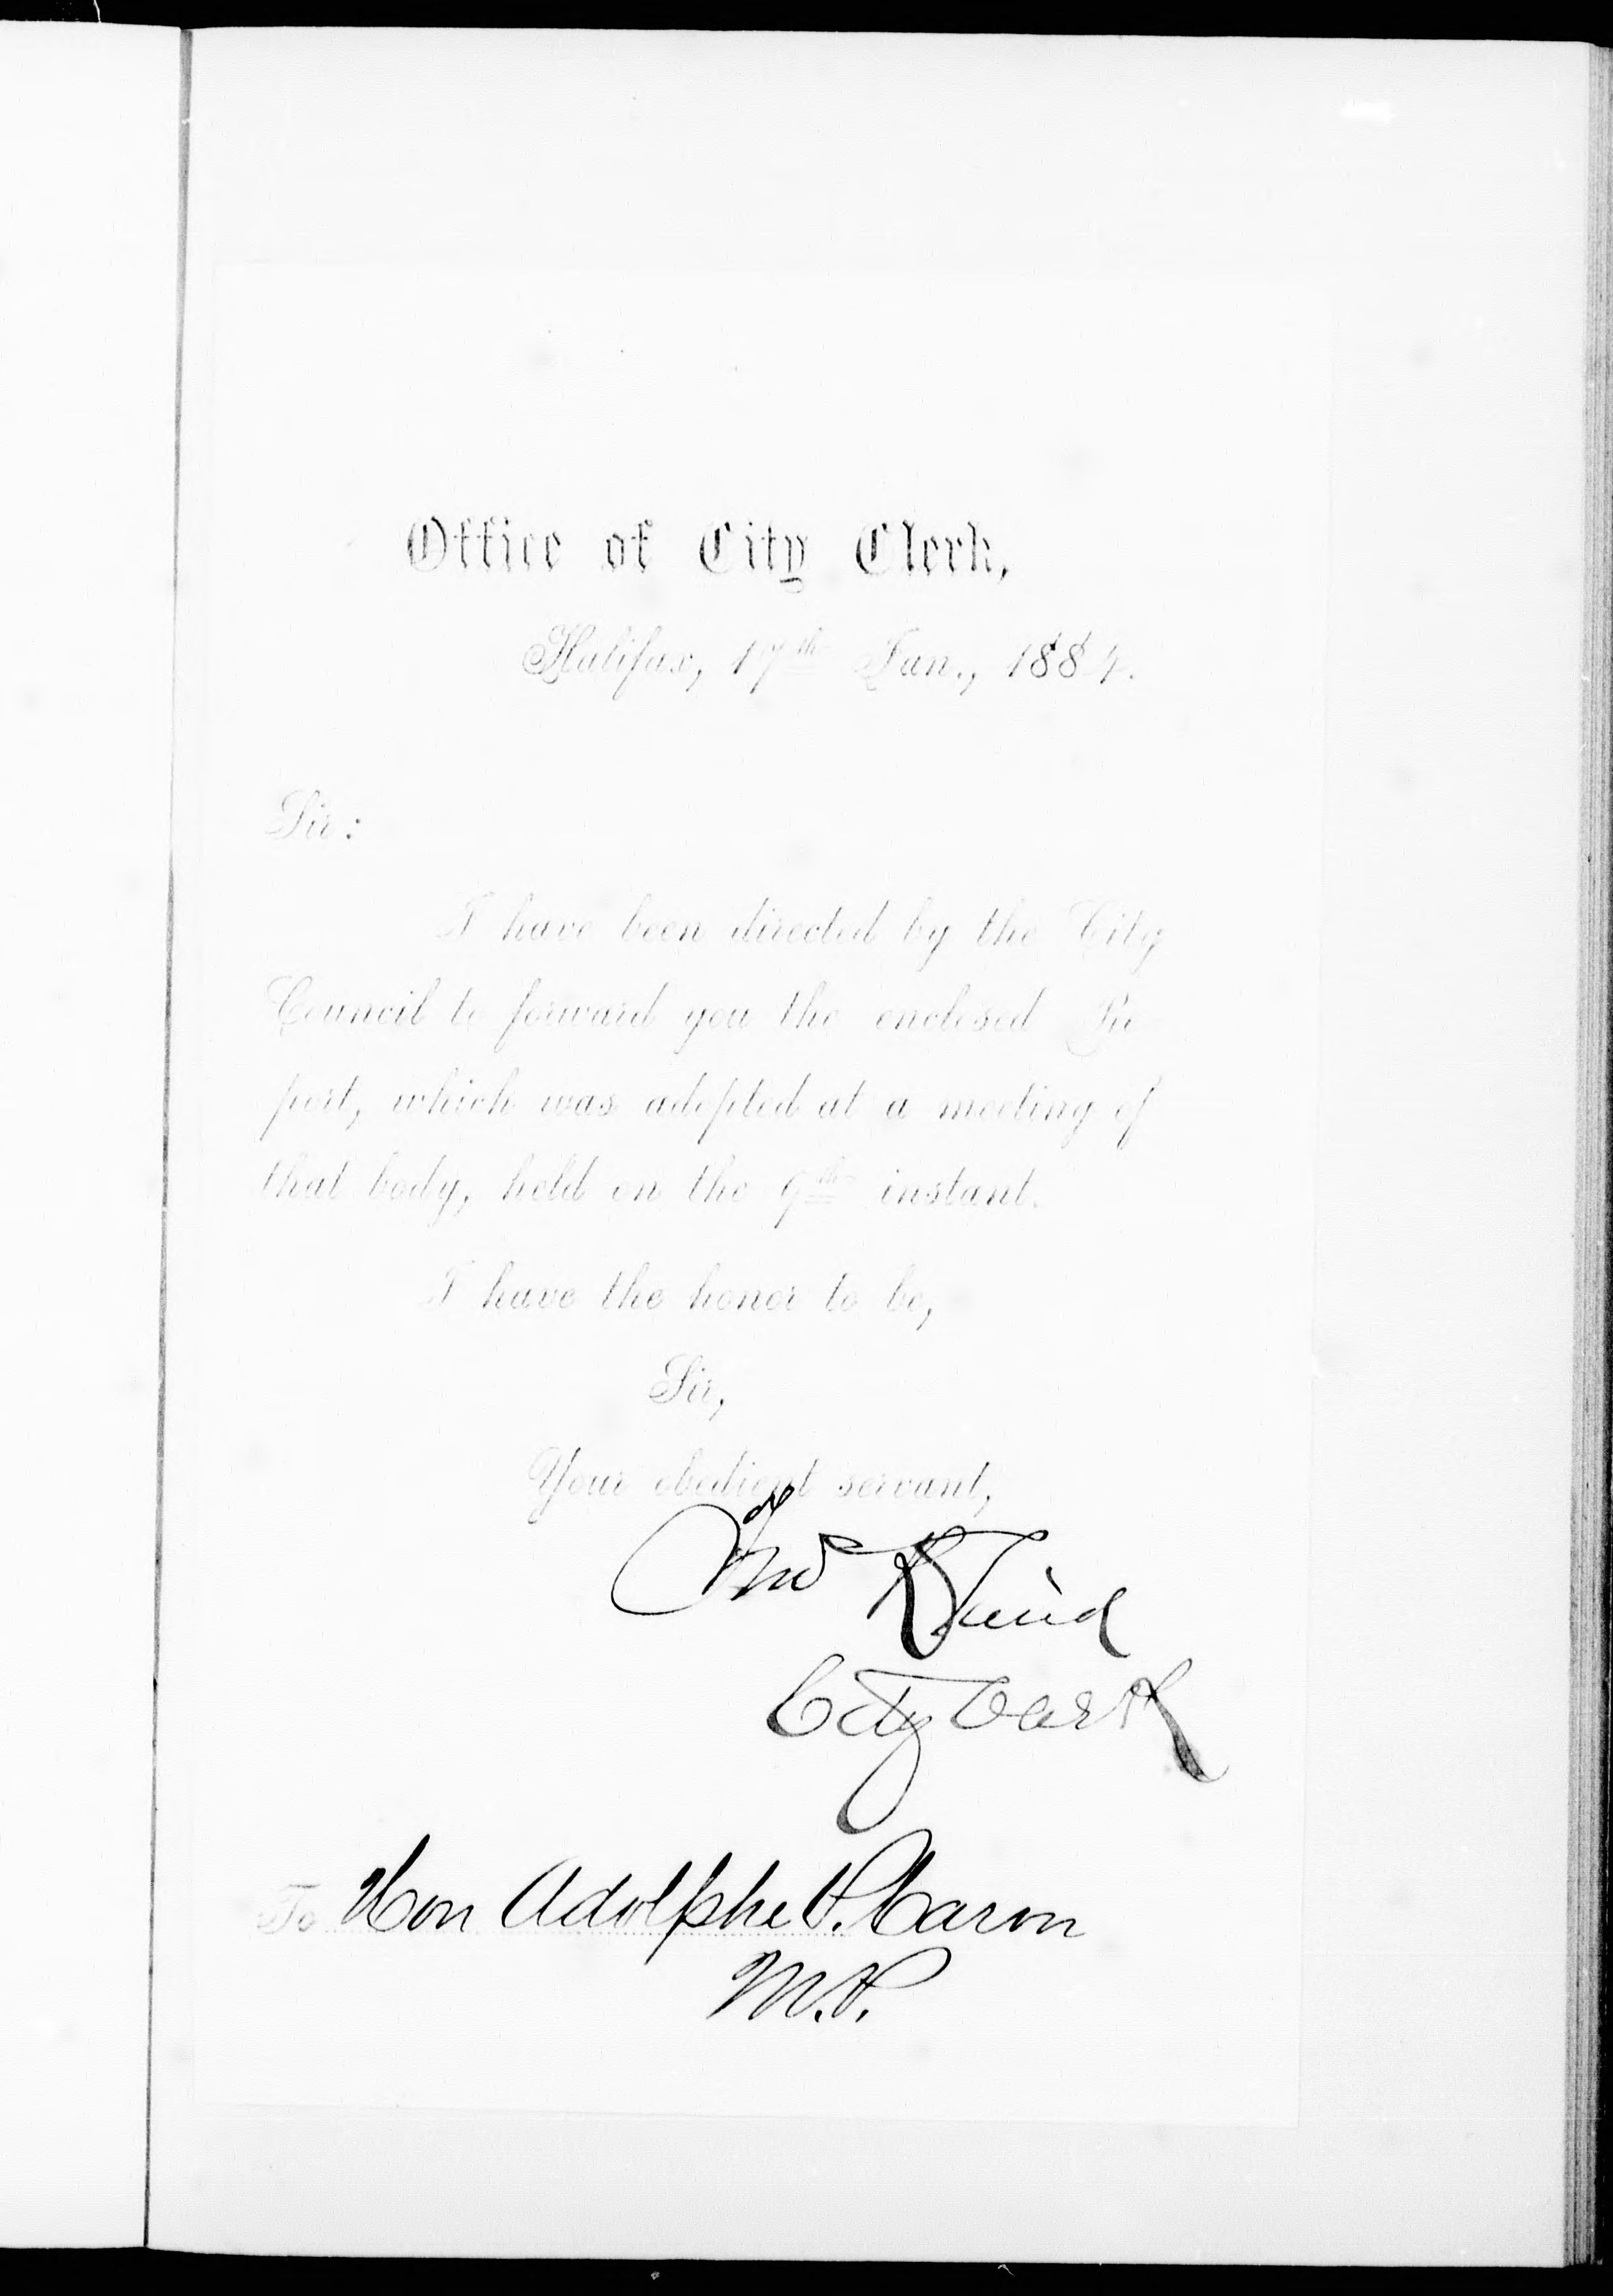 Office of City Clerk,
Halifax, 17th Jan., 1884.
Sir:
I have been directed by the City
Council to forward you the enclosed Re-
port, which was adopted at a meeting of
that body, held on the 9th instant.
I have the honor to be,
Sir,
Your obedient servant,
Thos Rhind
City Clerk
To Hon Adolphe P. Caron
M.P.